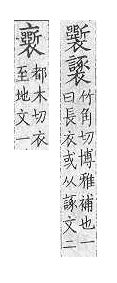 竹角切博雅補也一
曰長衣或从豖文二
都木切衣
至地文一